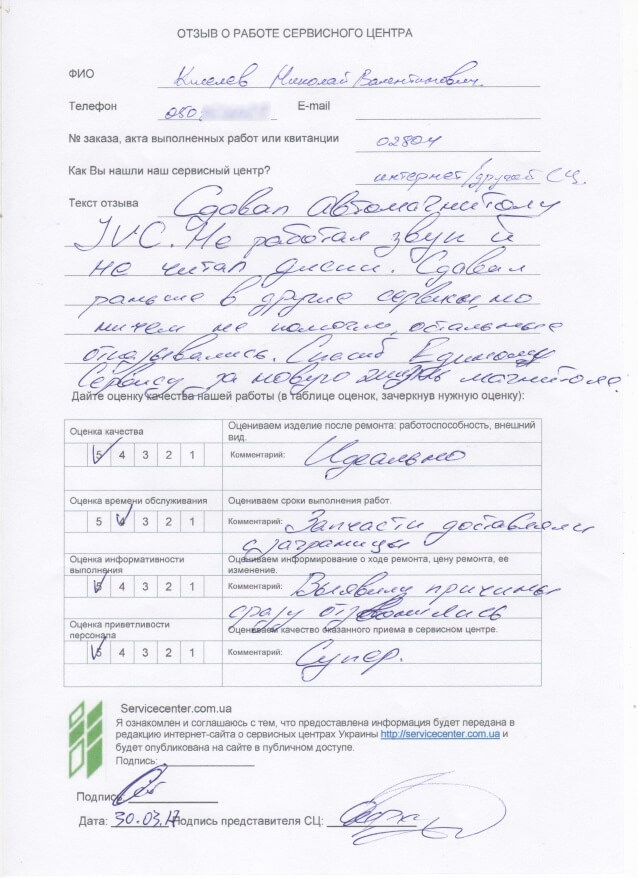 ОТЗЫВ О РАБОТЕ СЕРВИСНОГО ЦЕНТРА
ФИО Киселев Николай Валентинович
Телефон 050 E-mail
№ заказа, акта выполненных работ или квитанции 02804
Как Вы нашли наш сервисный центр? интернет/другой СЦ
Текст отзыва Сдавал автомагнитолу
JVC. Не работал звук и
не читал диски. Сдавал
раньше в другие сервисы, но
ничем не помогло, остальные
отказывались. Спасиб Единому
Сервису за новую жизнь магнитоле.
Дайте оценку качества нашей работы (в таблице оценок, зачеркнув нужную оценку):
Оценка качества
5 4 3 2 1
Оцениваем изделие после ремонта: работоспособность, внешний
вид.
Комментарий: Идеально
Оценка времени обслуживания
5 4 3 2 1
Оцениваем сроки выполнения работ.
Комментарий: Запчасти доставляли
с заграницы
Оценка информативности
выполнения
5 4 3 2 1
Оцениваем информирование о ходе ремонта, цену ремонта, ее
изменение.
Комментарий: Выявили причины
сразу отзвонились
Оценка приветливости
персонала
5 4 3 2 1
Оцениваем качество оказанного приема в сервисном центре.
Комментарий: Супер.
Servicecenter.com.ua
Я ознакомлен и соглашаюсь с тем, что предоставлена информация будет передана в
редакцию интернет-сайта о сервисных центрах Украины http://servicecenter.com.ua и
будет опубликована на сайте в публичном доступе.
Подпись:
Подпись:
Дата: 30.03.17 Подпись представителя СЦ: